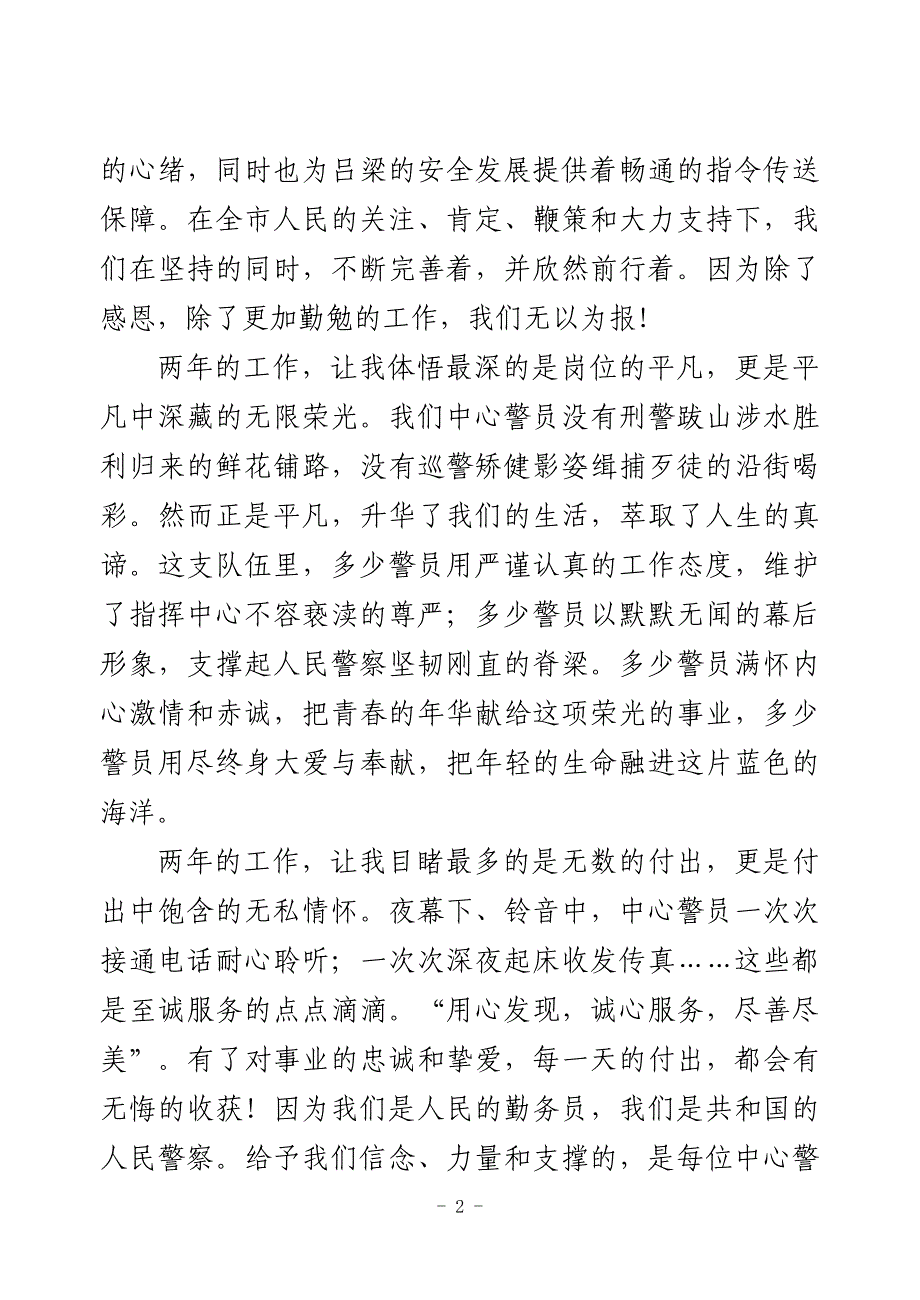 的心绪，同时也为吕梁的安全发展提供着畅通的指令传送
保障。在全市人民的关注、肯定、鞭策和大力支持下，我
们在坚持的同时，不断完善着，并欣然前行着。因为除了
感恩，除了更加勤勉的工作，我们无以为报！
两年的工作，让我体悟最深的是岗位的平凡，更是平
凡中深藏的无限荣光。我们中心警员没有刑警跋山涉水胜
利归来的鲜花铺路，没有巡警矫健影姿缉捕歹徒的沿街喝
彩。然而正是平凡，升华了我们的生活，萃取了人生的真
谛。这支队伍里，多少警员用严谨认真的工作态度，维护
了指挥中心不容亵渎的尊严；多少警员以默默无闻的幕后
形象，支撑起人民警察坚韧刚直的脊梁。多少警员满怀内
心激情和赤诚，把青春的年华献给这项荣光的事业，多少
警员用尽终身大爱与奉献，把年轻的生命融进这片蓝色的
海洋。
两年的工作，让我目睹最多的是无数的付出，更是付
出中饱含的无私情怀。夜幕下、铃音中，中心警员一次次
接通电话耐心聆听；一次次深夜起床收发传真……这些都
是至诚服务的点点滴滴。“用心发现，诚心服务，尽善尽
美”。有了对事业的忠诚和挚爱，每一天的付出，都会有
无悔的收获！因为我们是人民的勤务员，我们是共和国的
人民警察。给予我们信念、力量和支撑的，是每位中心警
- 2 -